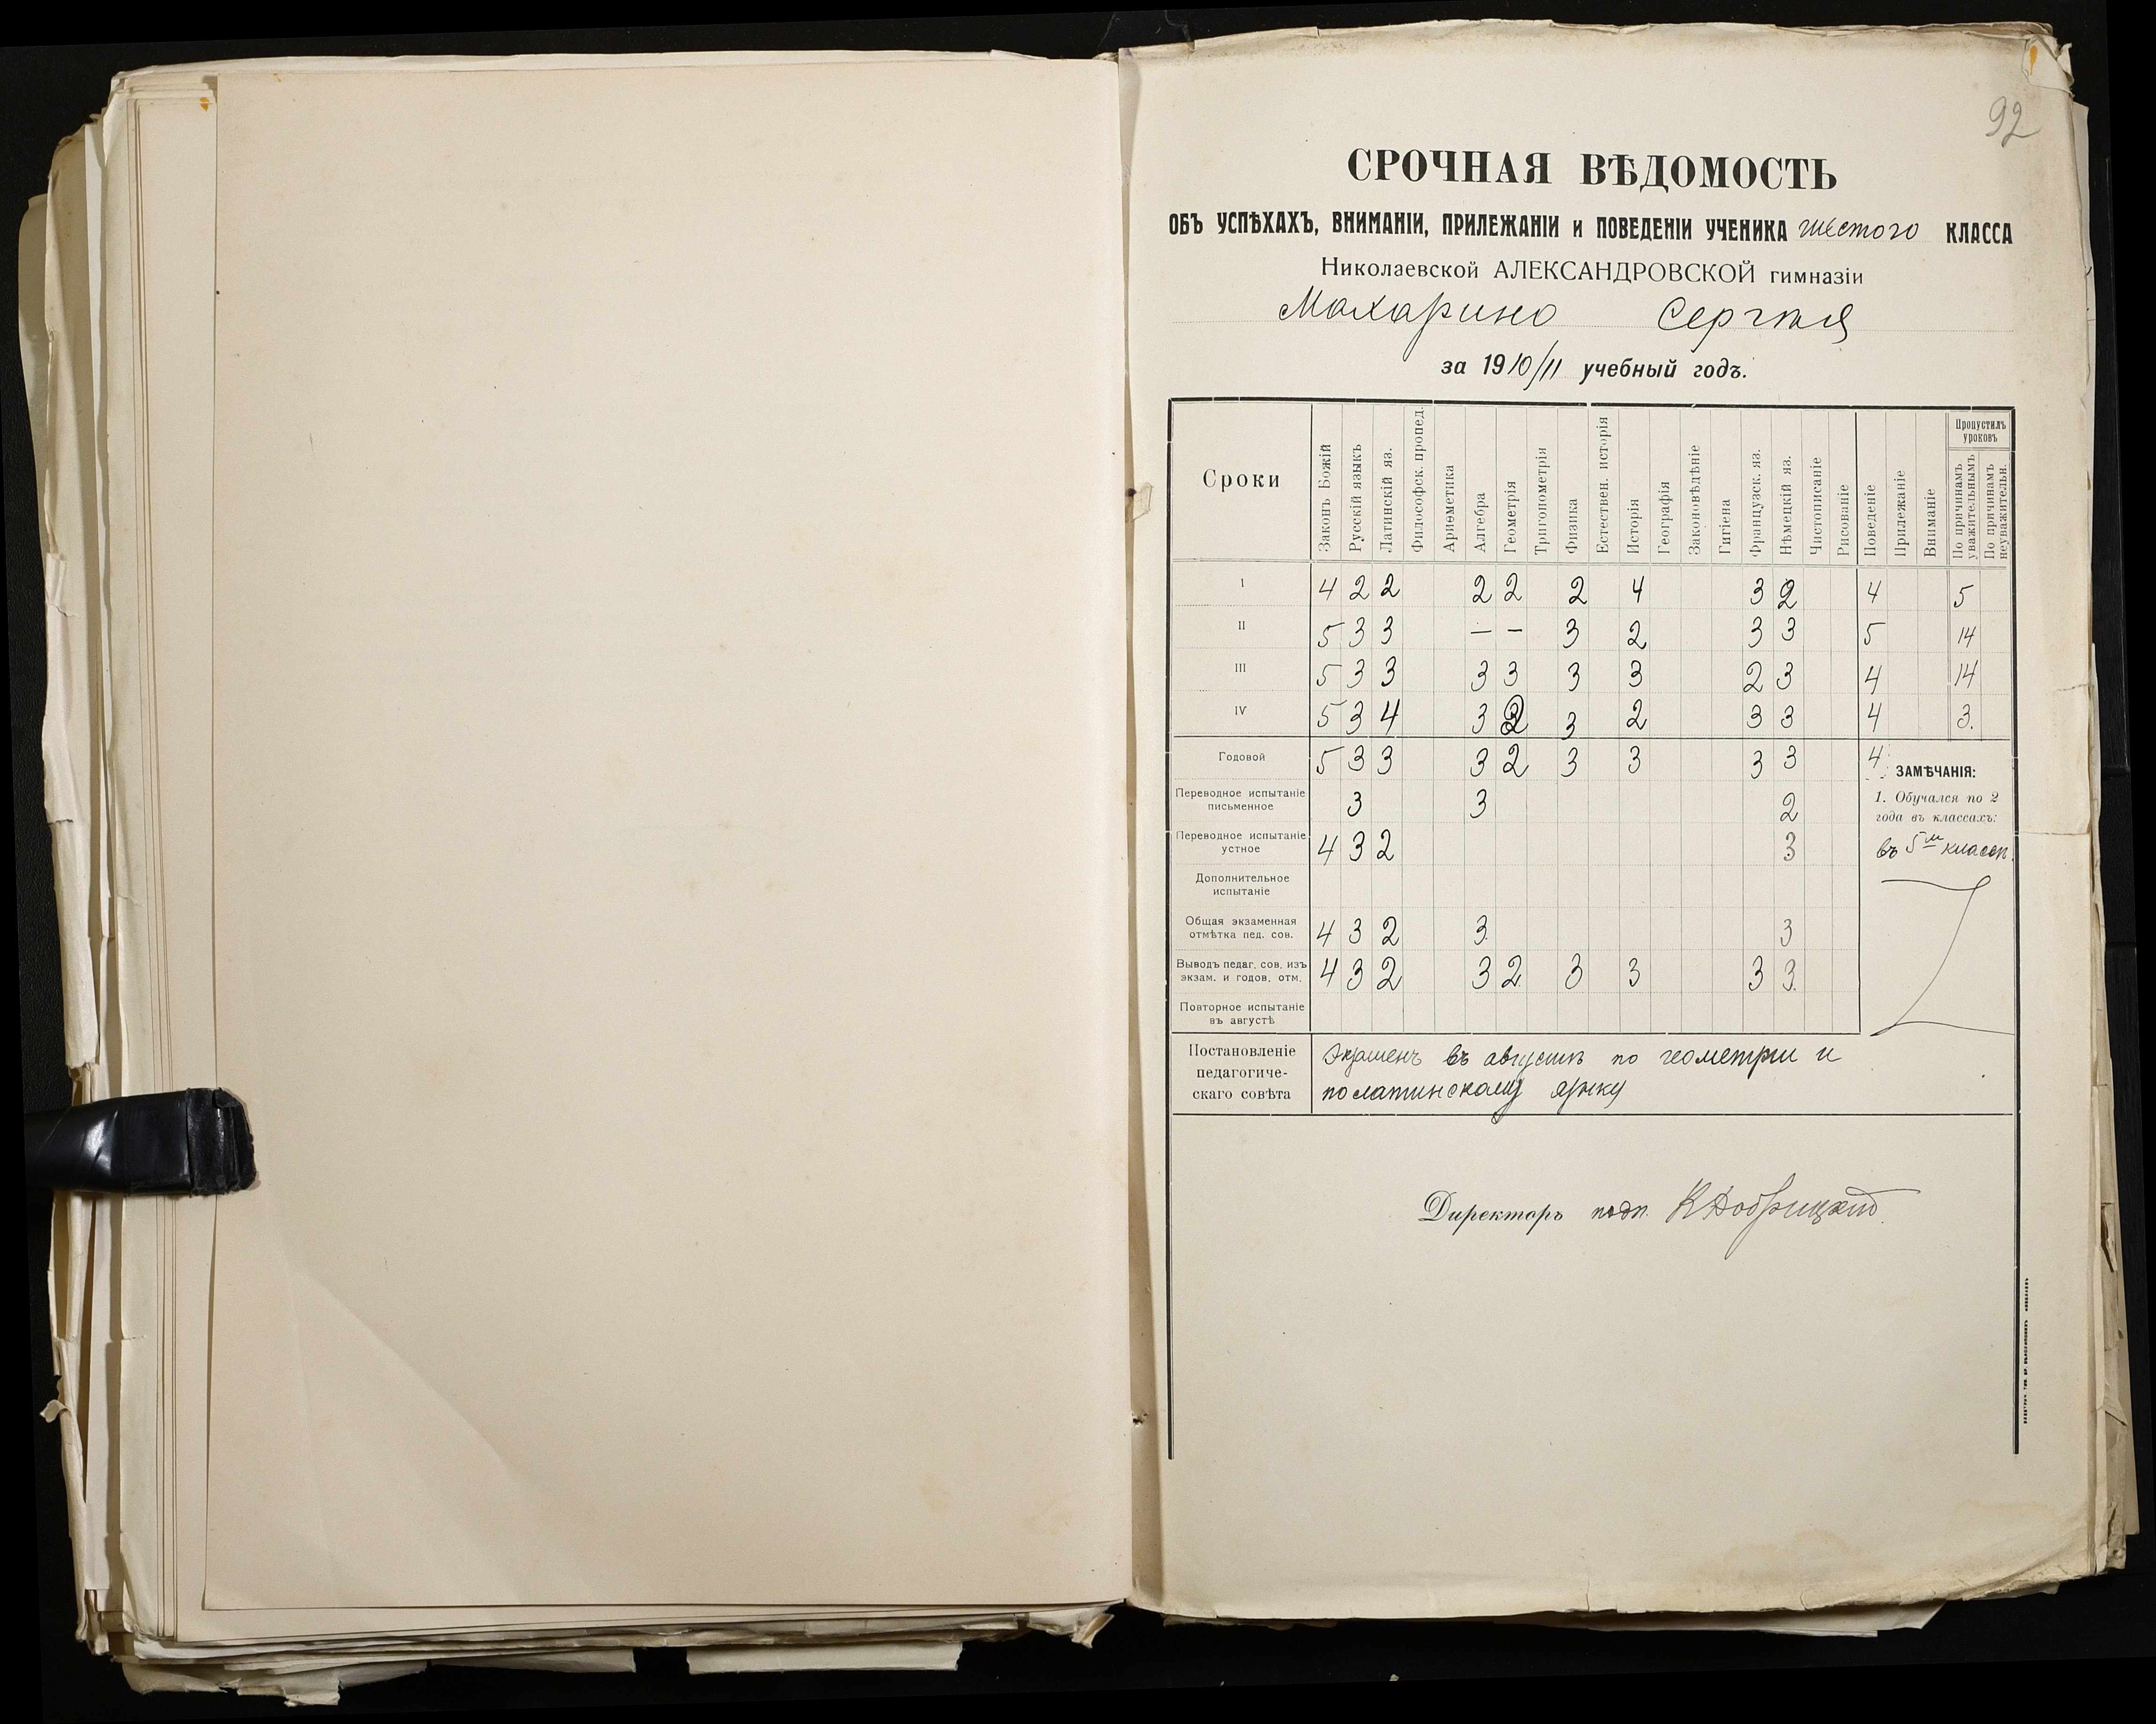 92
СРОЧНАЯ ВѢДОМОСТЬ
ОБЪ УСПѢХАХЪ, ВНИМАНІИ, ПРИЛЕЖАНІИ и ПОВЕДЕНІИ УЧЕНИКА шестого КЛАССА
Николаевской АЛЕКСАНДРОВСКОЙ гимназіи
Махарино Сергѣя
за 1910/11 учебный годъ.
Сроки Законъ Божій Русскій языкъ Латинскій яз. Философск. пропед. Ариѳметика Алгебра Геометрія Тригонометрія Физика Естествен. исторія Исторія Географія Законовѣдѣніе Гигіена Французск. яз. Нѣмецкій яз. Чистописаніе Рисованіе Поведеніе Прилежаніе Вниманіе Пропустилъ уроковъ По причинамъ уважительнымъ По причинамъ неуважительн.
I 4 2 2 2 2 2 4 3 2 4 5
II 5 3 3 — — 3 2 3 3 5 14
III 5 3 3 3 3 3 3 2 3 4 14
IV 5 3 4 3 2 3 2 3 3 4 3.
Годовой 5 3 3 3 2 3 3 3 3 4
ЗАМѢЧАНІЯ:
Переводное испытаніе письменное 3 3 2
1. Обучался по 2
года въ классахъ:
Переводное испытаніе устное 4 3 2 3
въ 5м классѣ.
Дополнительное испытаніе
Общая экзаменная отмѣтка пед. сов. 4 3 2 3. 3
Выводъ педаг. сов. изъ экзам. и годов. отм. 4 3 2 3 2. 3 3 3 3.
Повторное испытаніе въ августѣ
Постановленіе педагогиче-скаго совѣта
Экзаменъ въ августѣ по геометріи и
по латинскому языку
Директоръ подп. К Добрицкій